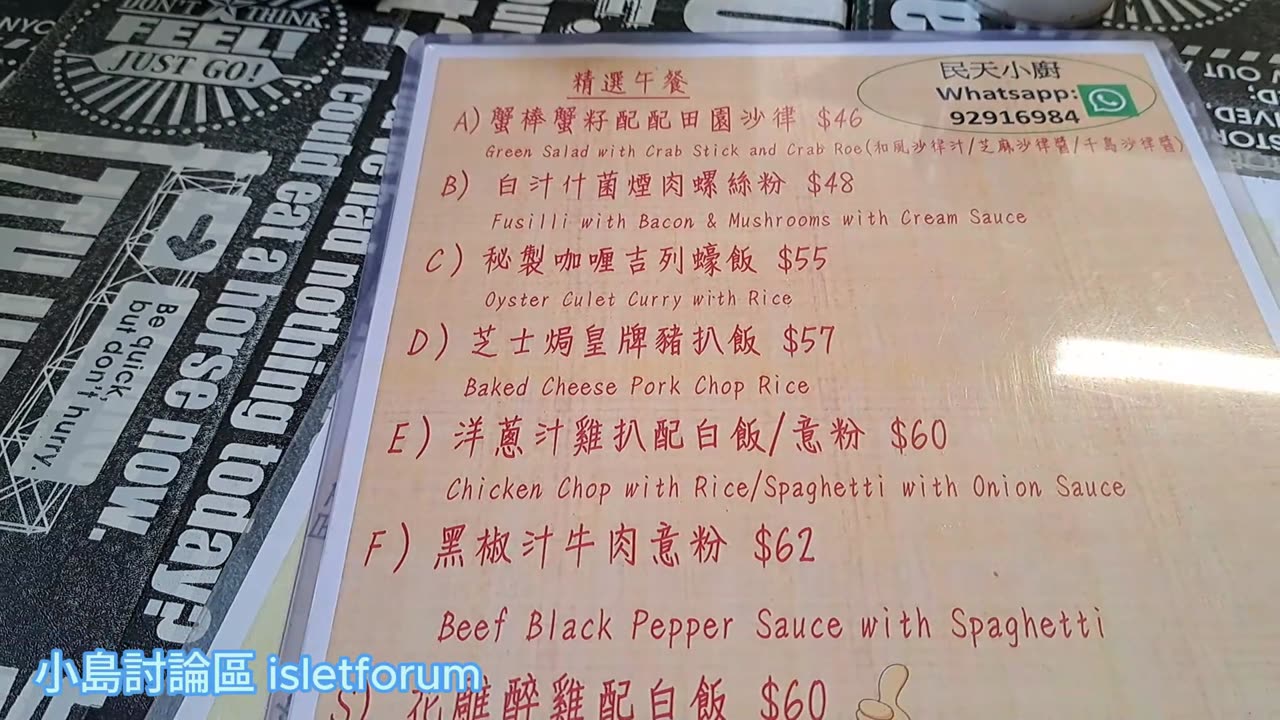 DON'T THINK
FEEL!
JUST GO!
I could eat a horse now.
nothing today?
Be quick,
but don't hurry.
精選午餐
民天小廚
Whatsapp:
92916984
A) 蟹棒蟹籽配配田園沙律 $46
Green Salad with Crab Stick and Crab Roe(和風沙律汁/芝麻沙律醬/千島沙律醬)
B) 白汁什菌煙肉螺絲粉 $48
Fusilli with Bacon & Mushrooms with Cream Sauce
C) 秘製咖喱吉列蠔飯 $55
Oyster Culet Curry with Rice
D) 芝士焗皇牌豬扒飯 $57
Baked Cheese Pork Chop Rice
E) 洋蔥汁雞扒配白飯/意粉 $60
Chicken Chop with Rice/Spaghetti with Onion Sauce
F) 黑椒汁牛肉意粉 $62
Beef Black Pepper Sauce with Spaghetti
S) 花雕醉雞配白飯 $60
小島討論區 isletforum